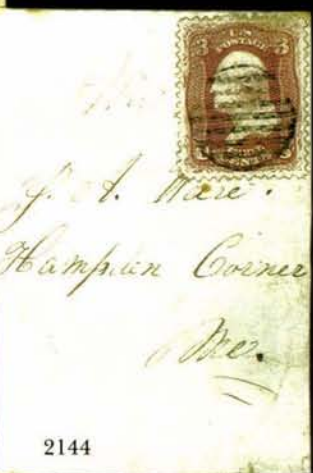 U.S.
POSTAGE
3 3
CENTS
J. A. Ware.
Hampden Corner
Me.
2144